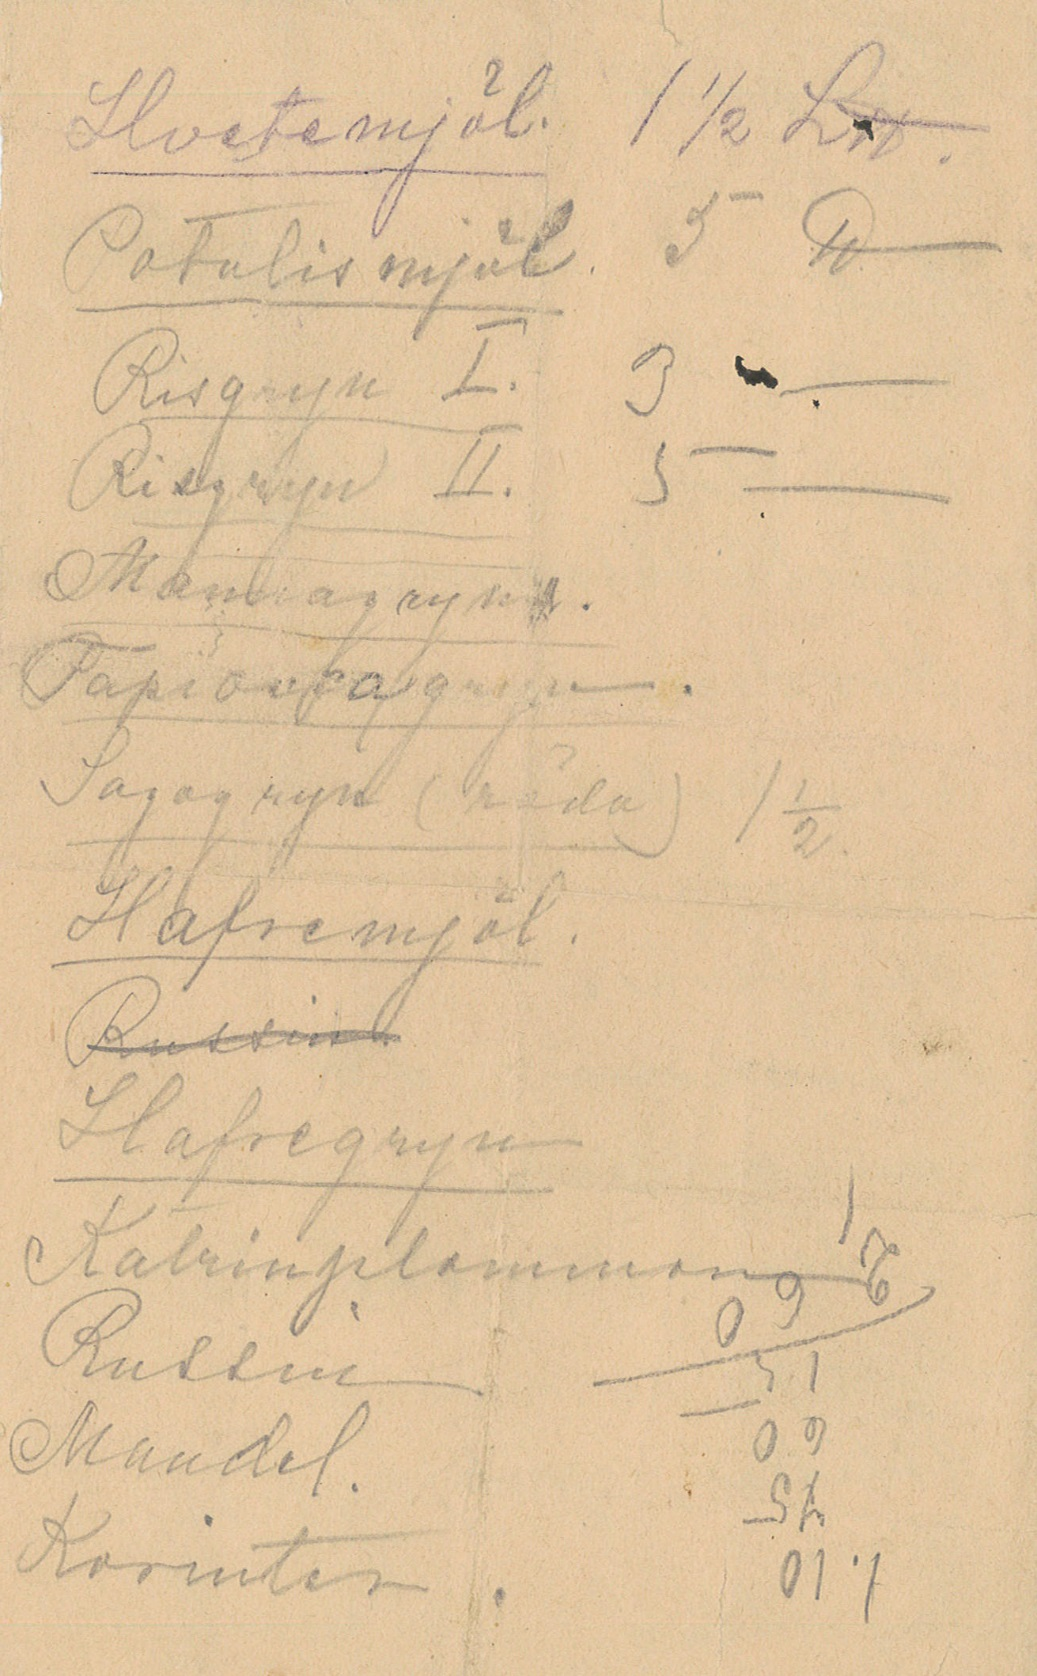 Hvetemjöl. 1 1/2 L℔.
Potatismjöl. 5 ℔
Risgryn I. 3
Risgryn II. 5
Mannagryn.
Tapiocagryn.
Sagogryn (röda) 1 1/2
Hafremjöl.
Russin
Hafregryn
Katrinplommon
Russin
Mandel.
Korinter.
1.10
45
60
15